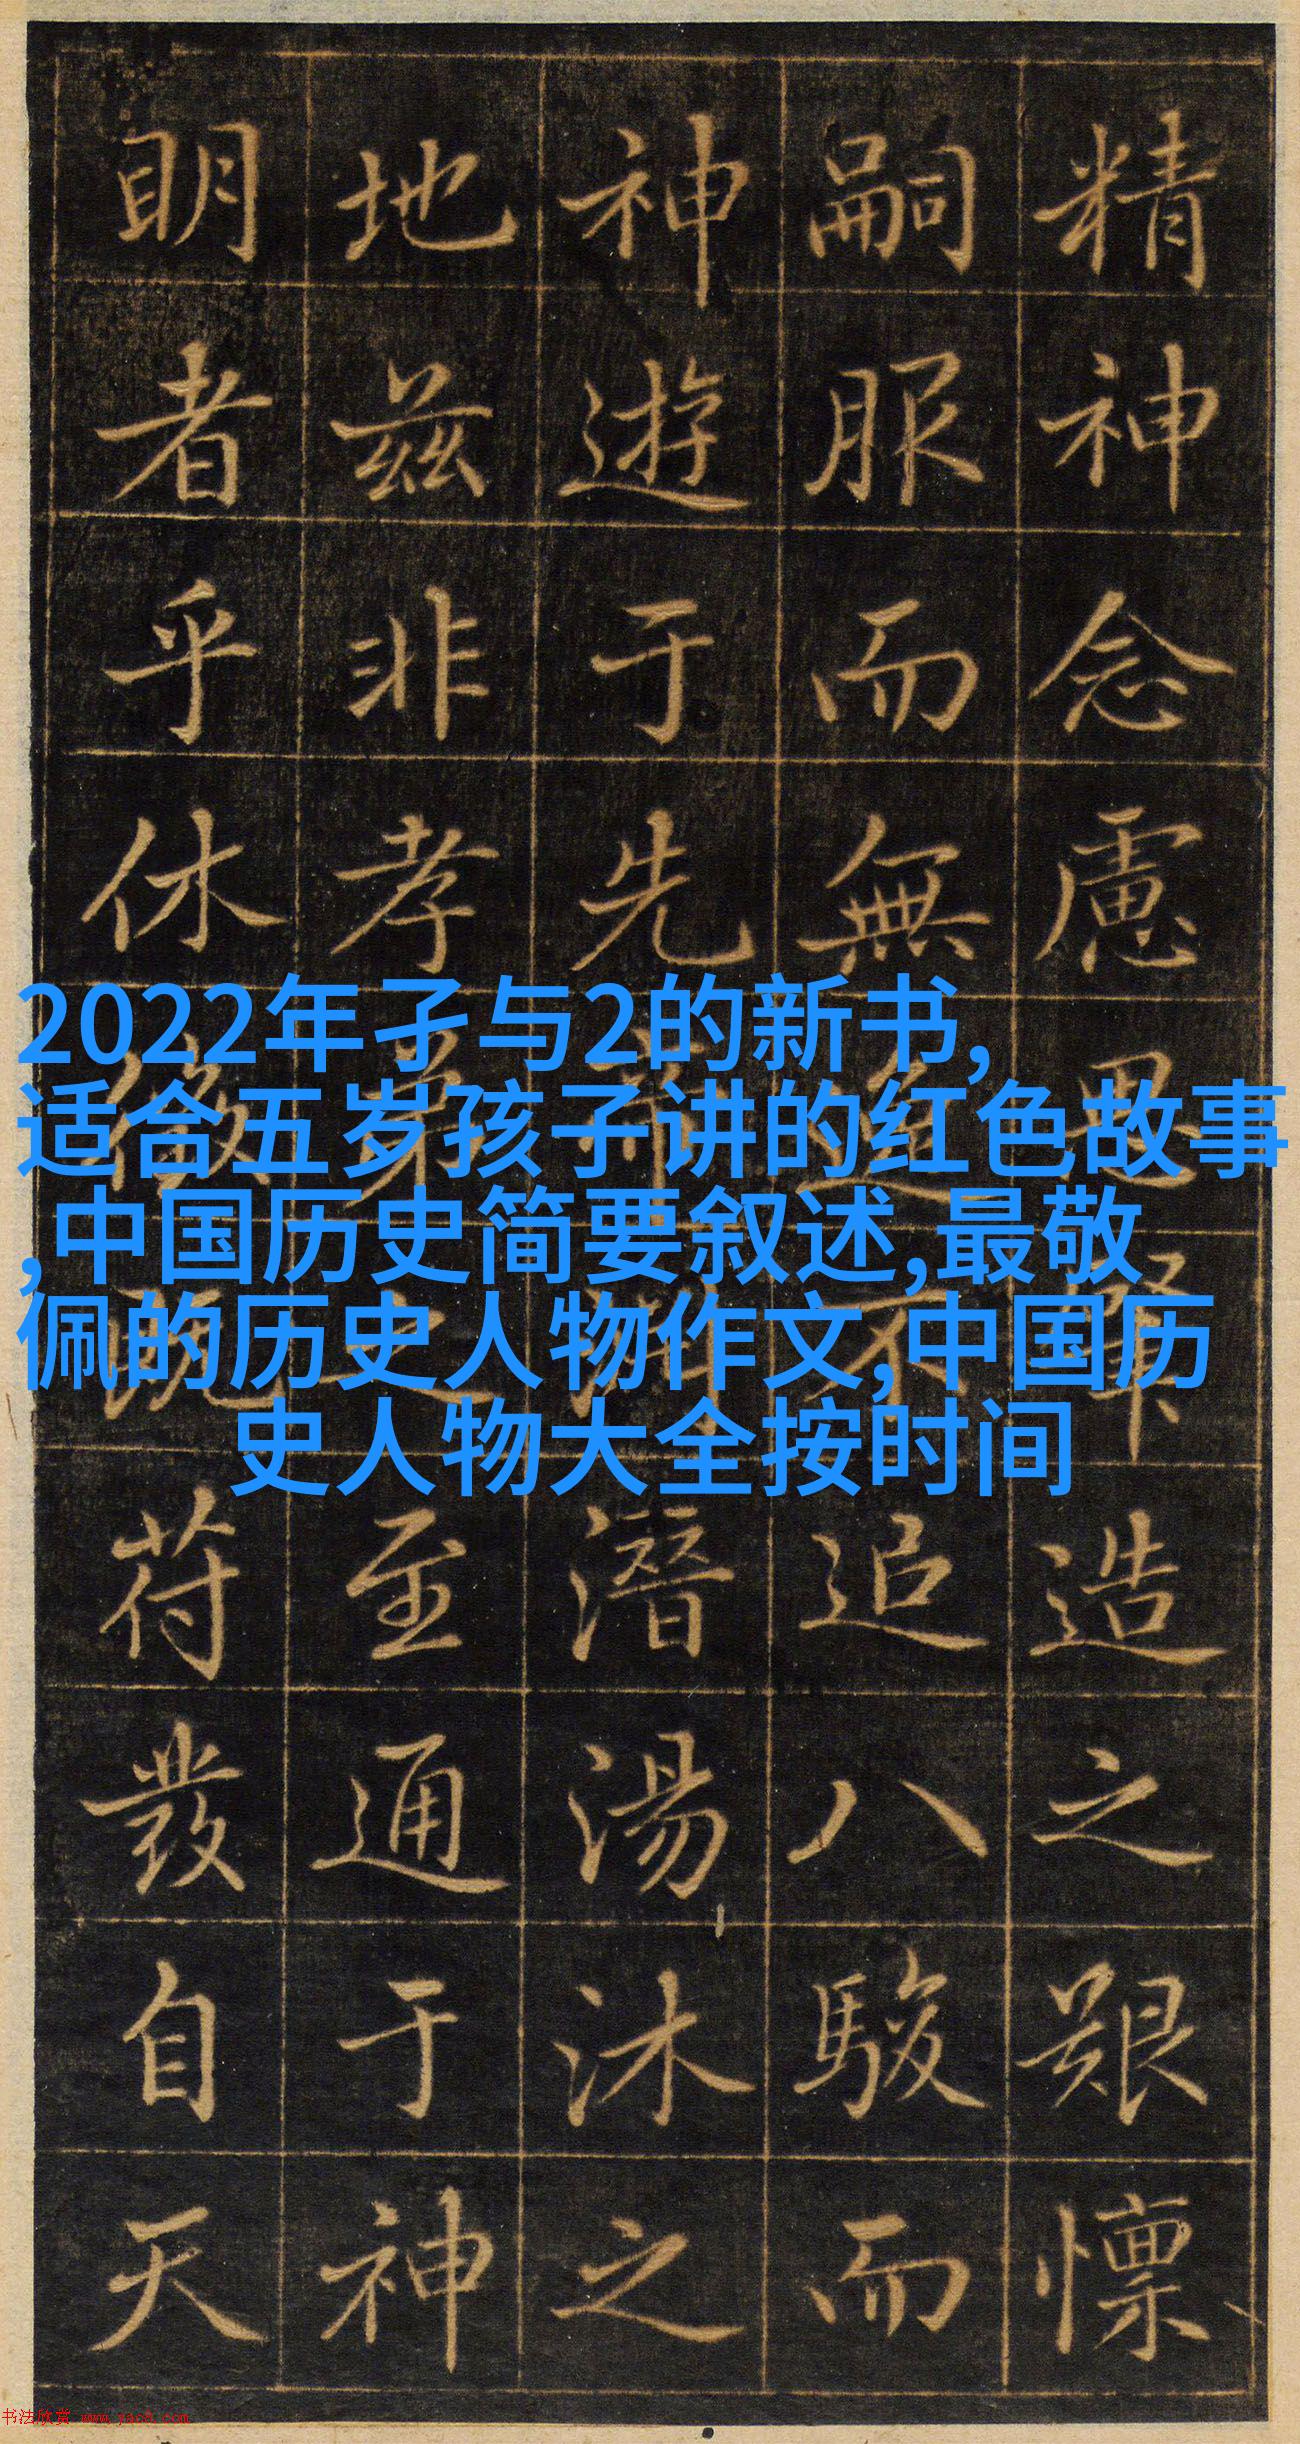 精神念慮造之艱懍
嗣服而無追八駿而
神遊于先潛湯沐之
地茲非孝弟之至通于神
明者乎休徵既苻發自天
2022年孑与2的新书,
适合五岁孩子讲的红色故事
,中国历史简要叙述,最敬
佩的历史人物作文,中国历
史人物大全按时间
书法欣赏 www.yac8.com